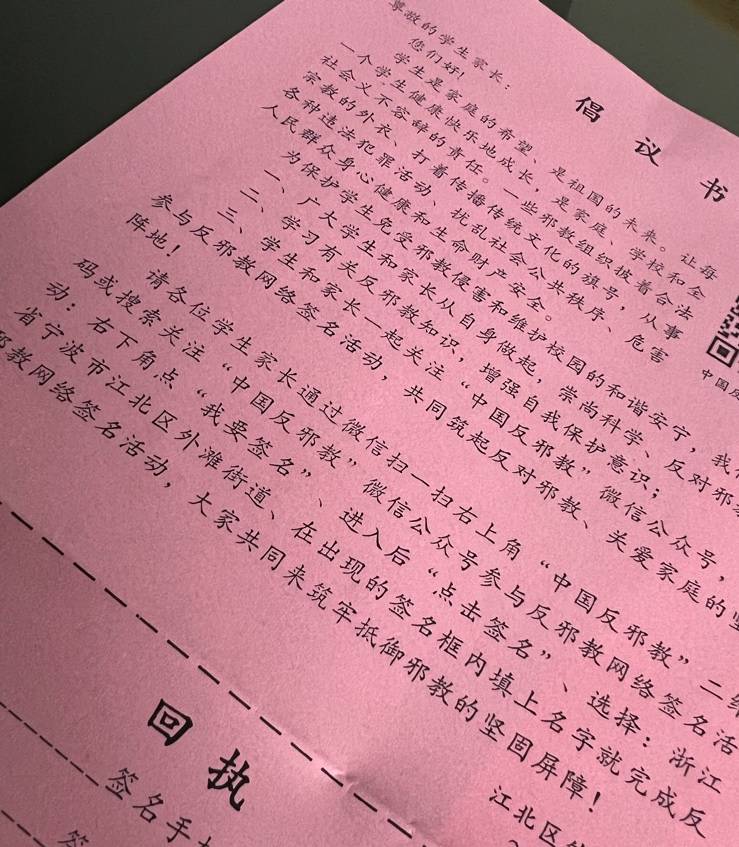 倡议书
尊敬的学生家长：
您们好！
学生是家庭的希望、是祖国的未来。让每
一个学生健康快乐地成长，是家庭、学校和全
社会义不容辞的责任。一些邪教组织披着合法
宗教的外衣、打着传播传统文化的旗号，从事
各种违法犯罪活动、扰乱社会公共秩序、危害
人民群众身心健康和生命财产安全。
为保护学生免受邪教侵害和维护校园的和谐安宁，我
一、广大学生和家长从自身做起，崇尚科学、反对邪
二、学习有关反邪教知识，增强自我保护意识；
三、学生和家长一起关注“中国反邪教”微信公众号，
参与反邪教网络签名活动，共同筑起反对邪教、关爱家庭的
阵地！
请各位学生家长通过微信扫一扫右上角“中国反邪教”二
码或搜索关注“中国反邪教”微信公众号参与反邪教网络签名活
动：右下角点“我要签名”、进入后“点击签名”、选择：浙江
省宁波市江北区外滩街道、在出现的签名框内填上名字就完成反
邪教网络签名活动，大家共同来筑牢抵御邪教的坚固屏障！
中国
江北区
回执
签名手